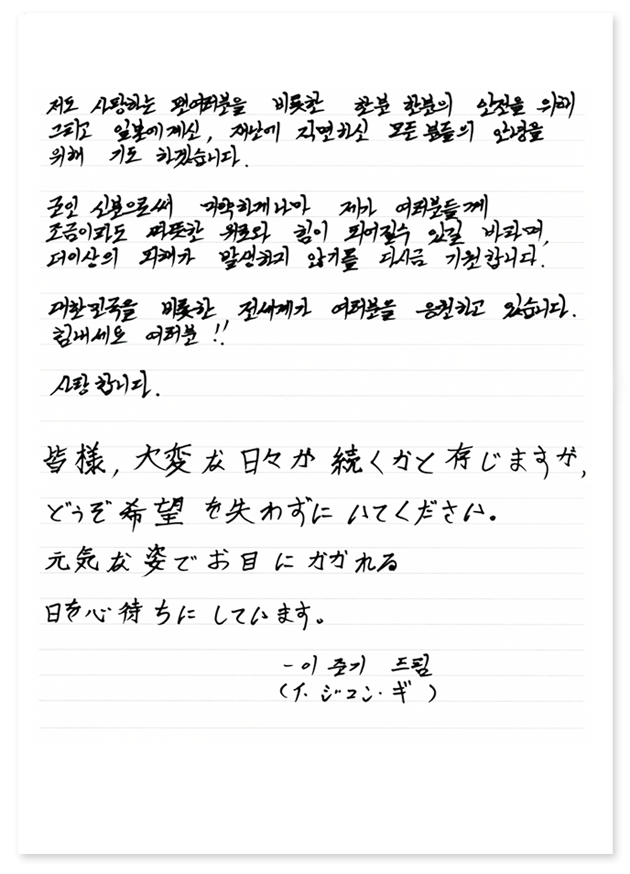 저도 사랑하는 팬여러분을 비롯한 한분 한분의 안전을 위해
그리고 일본에계신, 재난에 직면하신 모든 분들의 안녕을
위해 기도 하겠습니다.
군인 신분으로써 미약하게나마 제가 여러분들께
조금이라도 따뜻한 위로와 힘이 되어질수 있길 바라며,
더이상의 피해가 발생하지 않기를 다시금 기원합니다.
대한민국을 비롯한 전세계가 여러분을 응원하고 있습니다.
힘내세요 여러분!!
사랑합니다.
皆様, 大変な日々が続くかと存じますが,
どうぞ希望を失わずにいてください。
元気な姿でお目にかかれる
日を心待ちにしています。
- 이준기 드림
(イ・ジュン・ギ)